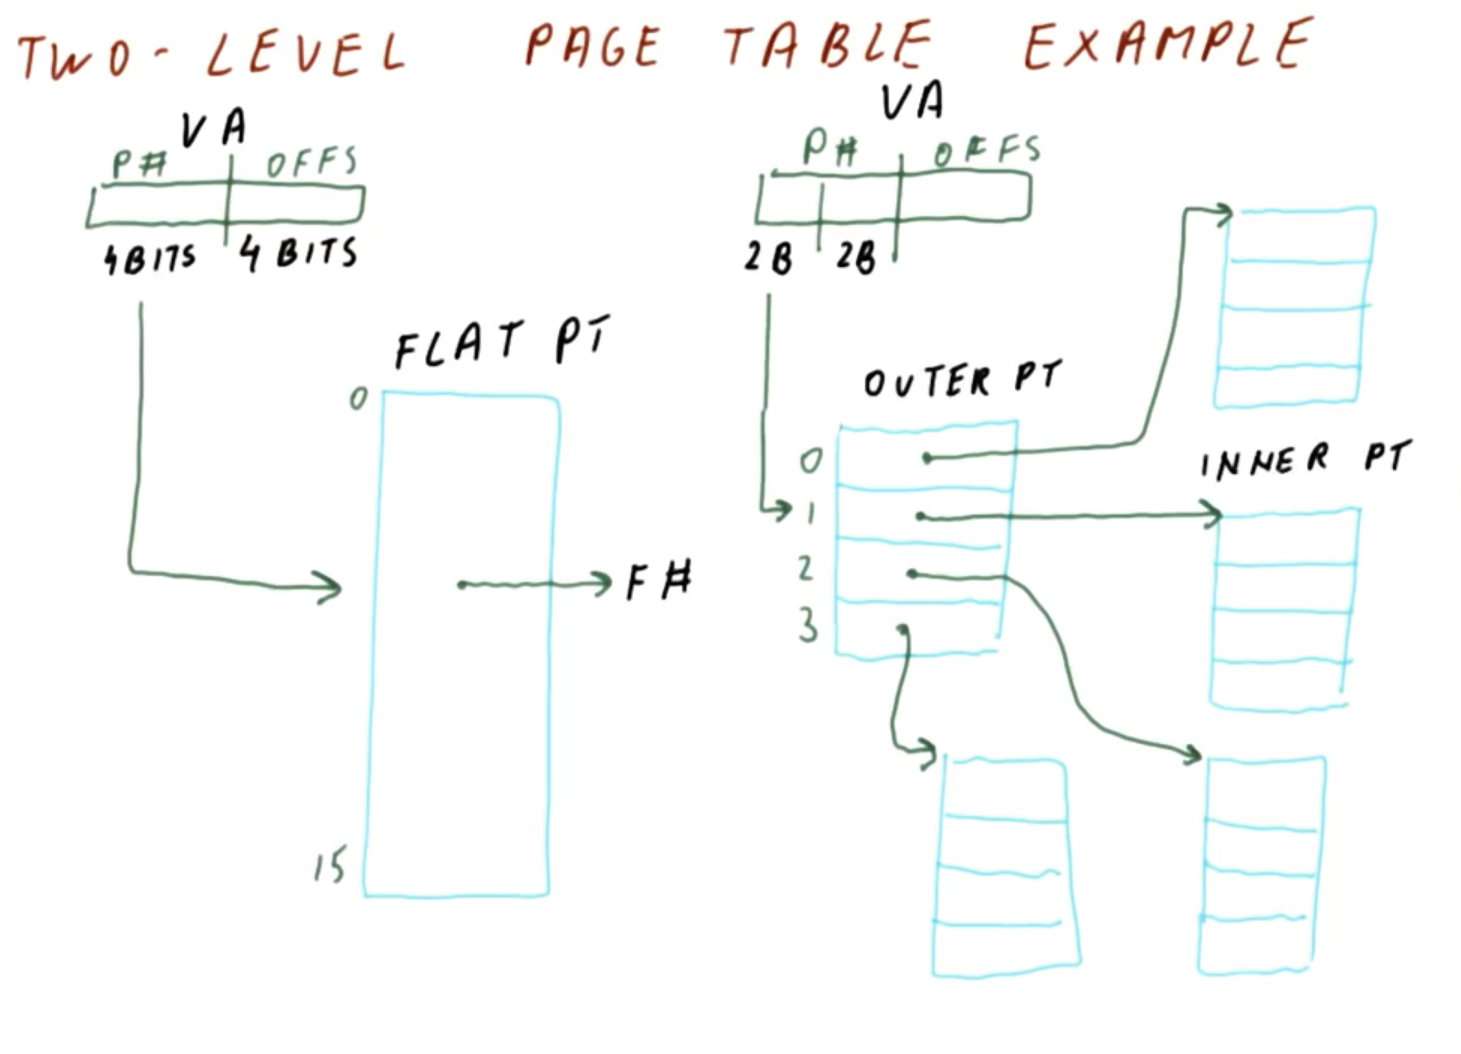 TWO-LEVEL PAGE TABLE EXAMPLE
VA
P# OFFS
4BITS 4 BITS
FLAT PT
0
F#
15
VA
P# OFFS
2B 2B
OUTER PT
0
1
2
3
INNER PT